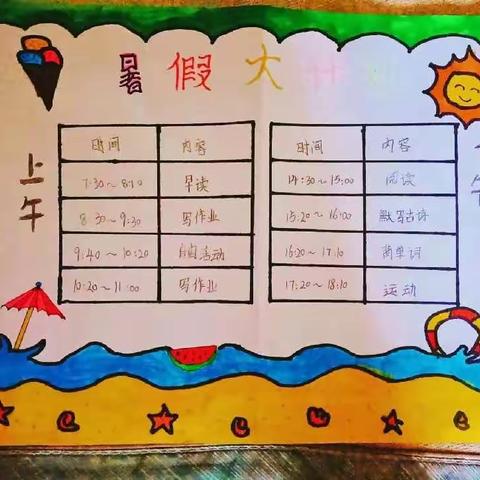 暑假大计
上午
时间 内容
7:30~8:10 早读
8:30~9:30 写作业
9:40~10:20 自由活动
10:20~11:00 写作业
时间 内容
14:30~15:00 阅读
15:20~16:00 默写古诗
16:20~17:10 背单词
17:20~18:10 运动